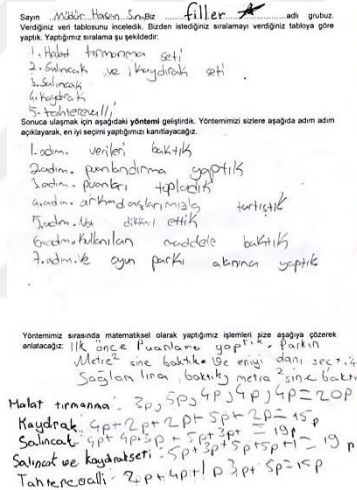 Sayın Müdür Hasan Sn. Biz filler adlı grubuz.
Verdiğiniz veri tablosunu inceledik. Bizden istediğiniz sıralamayı verdiğiniz tabloya göre
yaptık. Yaptığımız sıralama şu şekildedir:
1. Halat tırmanma seti
2. Salıncak ve kaydırak seti
3. Salıncak
4. Kaydırak
5. tahterevalli
Sonuca ulaşmak için aşağıdaki yöntemi geliştirdik. Yöntemimizi sizlere aşağıda adım adım
açıklayarak, en iyi seçimi yaptığımızı kanıtlayacağız.
1. adım. verileri baktık
2 adım. puanlandırma yaptık
3 adım. puanları topladık
4. adım. arkadaşlarımızla tartıştık
5. adım. dikkat ettik
6. adım. Kullanılan maddele baktık
7. adım. ve oyun parkı alanına yaptık
Yöntemimiz sırasında matematiksel olarak yaptığımız işlemleri size aşağıya çözerek
anlatacağız: İlk önce Puanlama yaptık. Parkın
Metre² sine baktık. Ve eniyi danı seçtik
Sağlam lına baktık, metra² sine baktı
Halat tırmanma: 3p, 5p, 4p, 4p, 4p = 20p
Kaydırak: 4p + 2p + 2p + 5p + 2p = 15p
Salıncak: 4p + 4p + 3p + 5p + 3p = 19p
Salıncat ve kaydırakseti: 5p + 3p + 5p + 5p + 1 = 19p
Tahterevalli: 2p + 4p + 1p 3p + 5p = 15p